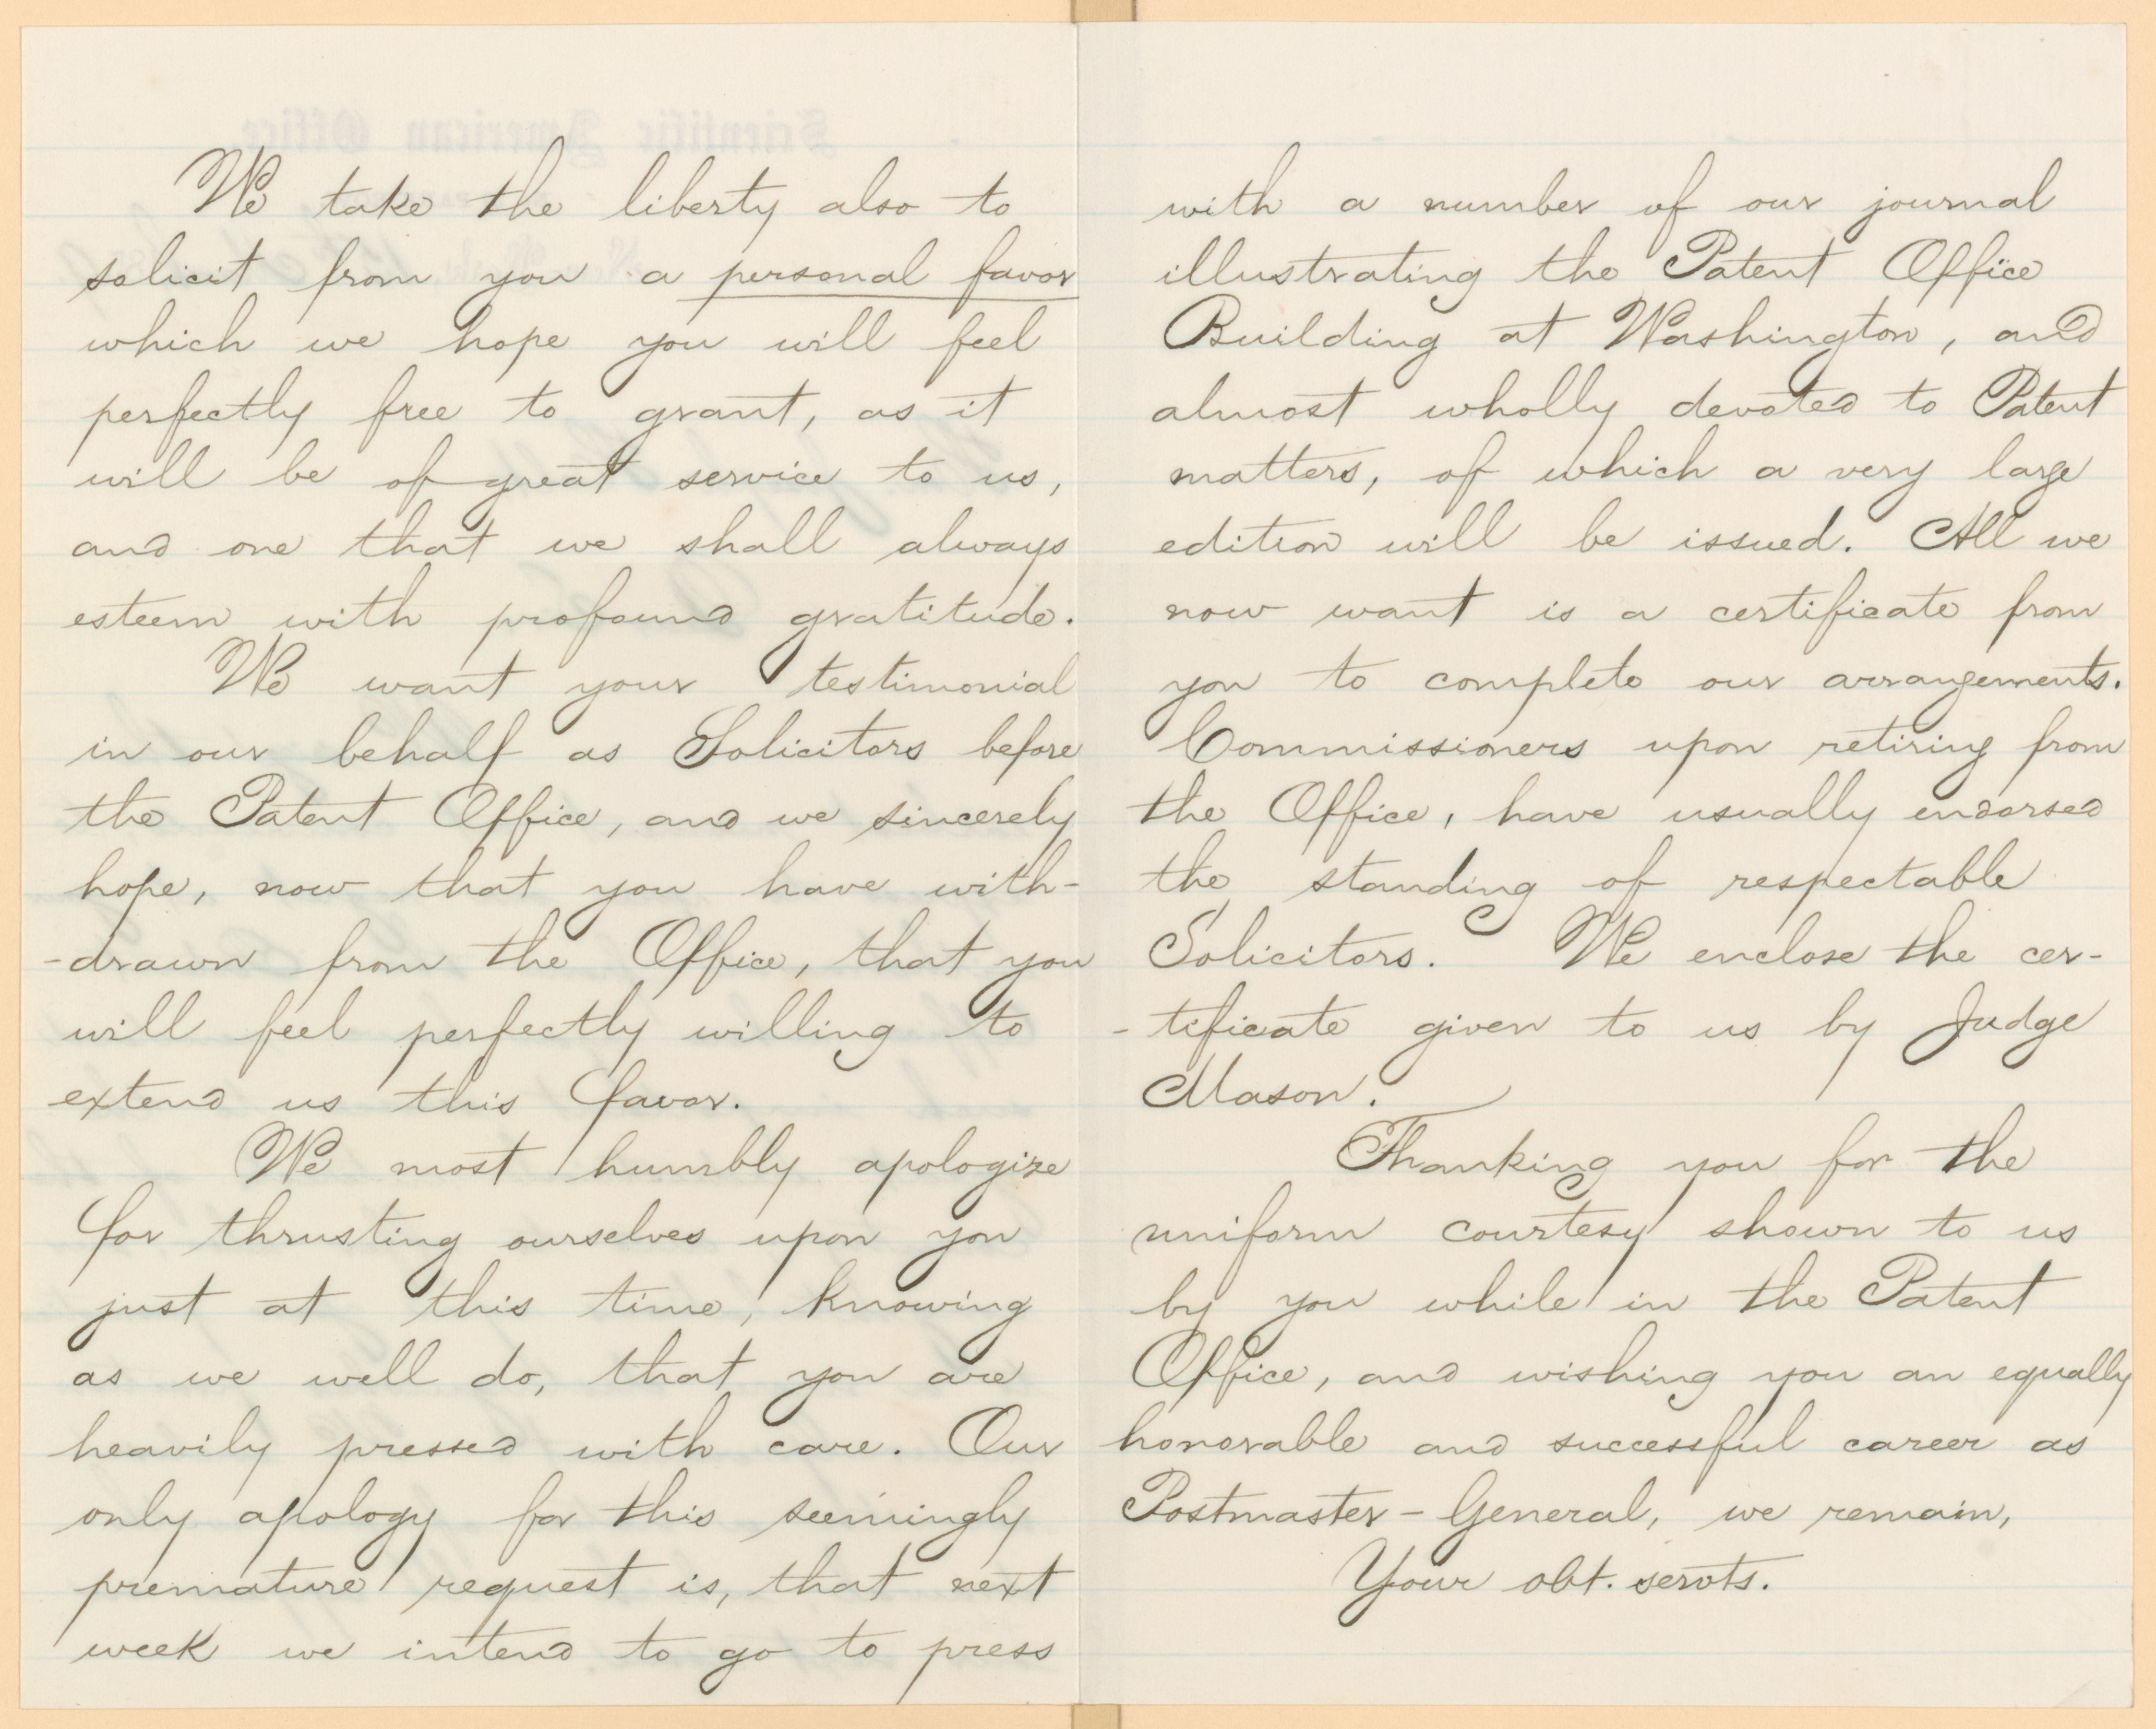 We take the liberty also to
solicit from you a personal favor
which we hope you will feel
perfectly free to grant, as it
will be of great service to us,
and one that we shall always
esteem with profound gratitude.
We want your testimonial
in our behalf as Solicitors before
the Patent Office, and we sincerely
hope, now that you have with-
-drawn from the Office, that you
will feel perfectly willing to
extend us this favor.
We most humbly apologize
for thrusting ourselves upon you
just at this time, knowing
as we well do, that you are
heavily pressed with care. Our
only apology for this seemingly
premature request is, that next
week we intend to go to press
with a number of our journal
illustrating the Patent Office
Building at Washington, and
almost wholly devoted to Patent
matters, of which a very large
edition will be issued. All we
now want is a certificate from
you to complete our arrangements.
Commissioners upon retiring from
the Office, have usually endorsed
the standing of respectable
Solicitors. We enclose the cer-
-tificate given to us by Judge
Mason.
Thanking you for the
uniform courtesy shown to us
by you while in the Patent
Office, and wishing you an equally
honorable and successful career as
Postmaster-General, we remain,
Your obt. servts.
Scientific American Office